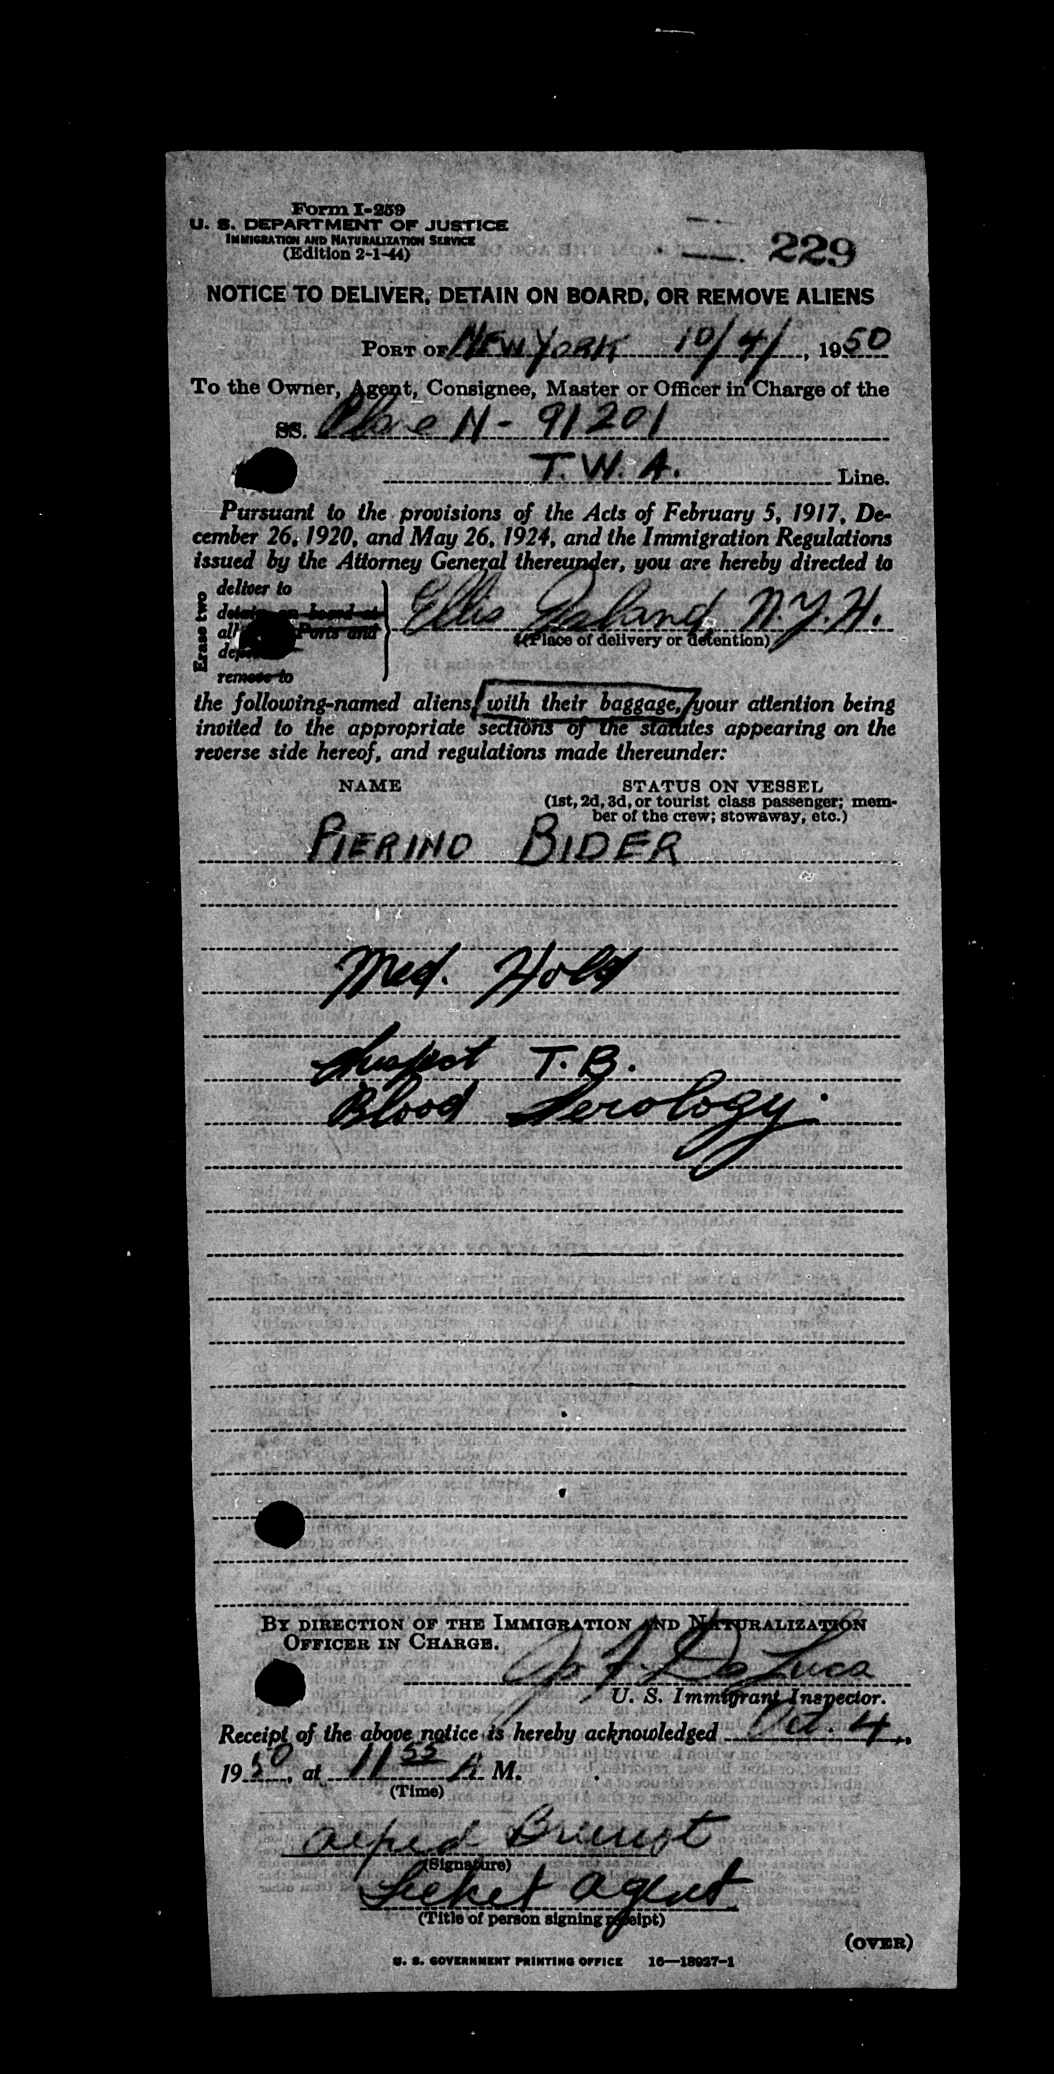 Form I-259
U. S. DEPARTMENT OF JUSTICE
IMMIGRATION AND NATURALIZATION SERVICE
(Edition 2-1-44)
229
NOTICE TO DELIVER, DETAIN ON BOARD, OR REMOVE ALIENS
PORT OF New York 10/4/, 1950
To the Owner, Agent, Consignee, Master or Officer in Charge of the
SS. Plane N-91201
T.W.A. Line.
Pursuant to the provisions of the Acts of February 5, 1917, De-
cember 26, 1920, and May 26, 1924, and the Immigration Regulations
issued by the Attorney General thereunder, you are hereby directed to
Erase two
deliver to
detain on board at
all Ports and
remove to
Ellis Island, N.Y.H.
(Place of delivery or detention)
the following-named aliens, with their baggage, your attention being
invited to the appropriate sections of the statutes appearing on the
reverse side hereof, and regulations made thereunder:
NAME STATUS ON VESSEL
(1st, 2d, 3d, or tourist class passenger; mem-
ber of the crew; stowaway, etc.)
PIERINO BIDER
Med. Hold
Suspect T.B.
Blood Serology.
BY DIRECTION OF THE IMMIGRATION AND NATURALIZATION
OFFICER IN CHARGE.
De Luca
U. S. Immigrant Inspector.
Receipt of the above notice is hereby acknowledged Oct. 4,
1950, at 11 55 A M.
(Time)
(Signature)
Ticket Agent
(Title of person signing receipt)
(OVER)
U. S. GOVERNMENT PRINTING OFFICE 16—18927-1